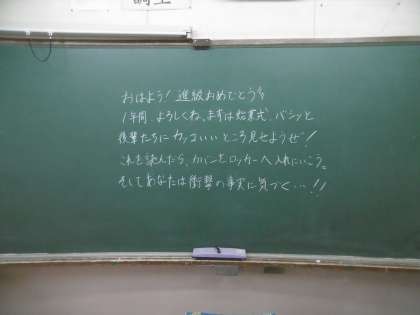 おはよう！進級おめでとう!!
1年間 よろしくね。まずは始業式、バシッと
後輩たちにカッコいいところ見せようぜ！
これを読んだら、カバンをロッカーへ入れにいこう。
そしてあなたは衝撃の事実に気づく…!!